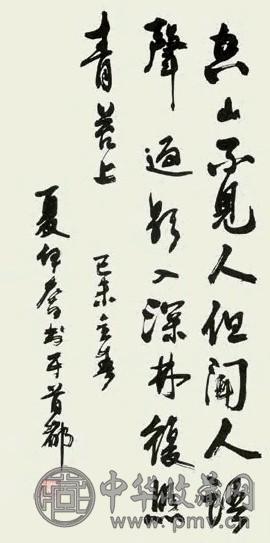 空山不見人但聞人語
聲返影入深林復照
青苔上
己未春
夏伊喬書于首都
中华收藏网
www.pmv.cn